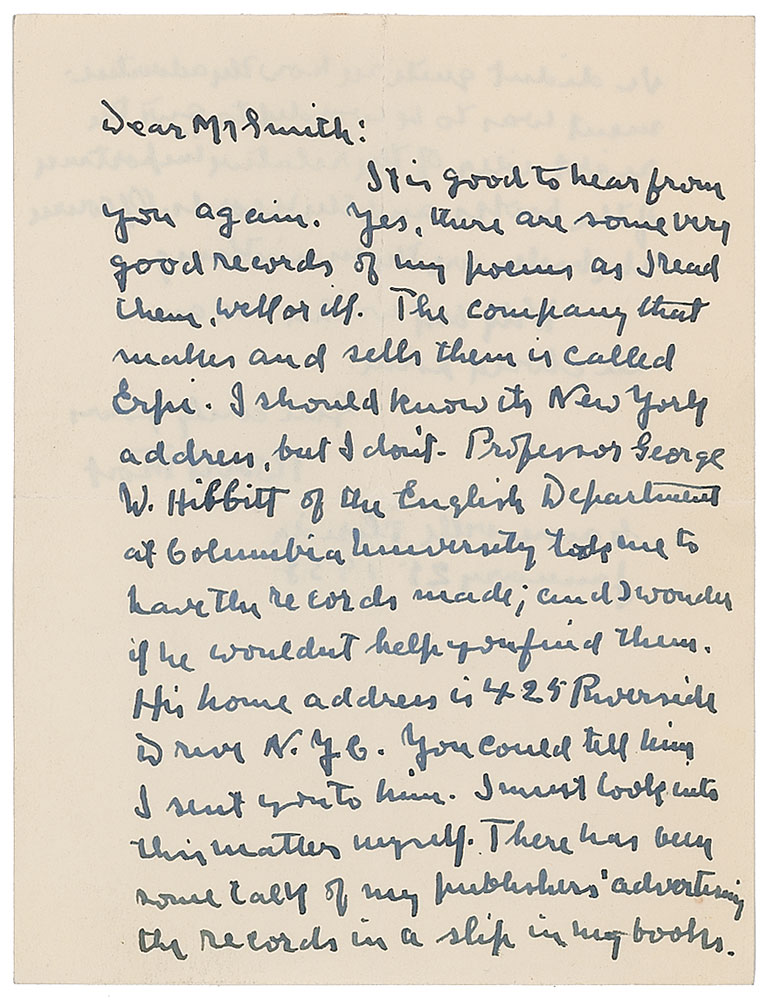 Dear Mr Smith:
It is good to hear from
you again. Yes, there are some very
good records of my poems as I read
them, well or ill. The company that
makes and sells them is called
Erpi. I should know its New York
address, but I don't. Professor George
W. Hibbitt of the English Department
at Columbia University me to
have the records made; and I wonder
if he wouldnt help you find them.
His home address is 425 Riverside
Drive N.Y.C. You could tell him
I sent you to him. I must look into
this matter myself. There has been
some talk of my publishers' advertising
the records in a slip in my books.